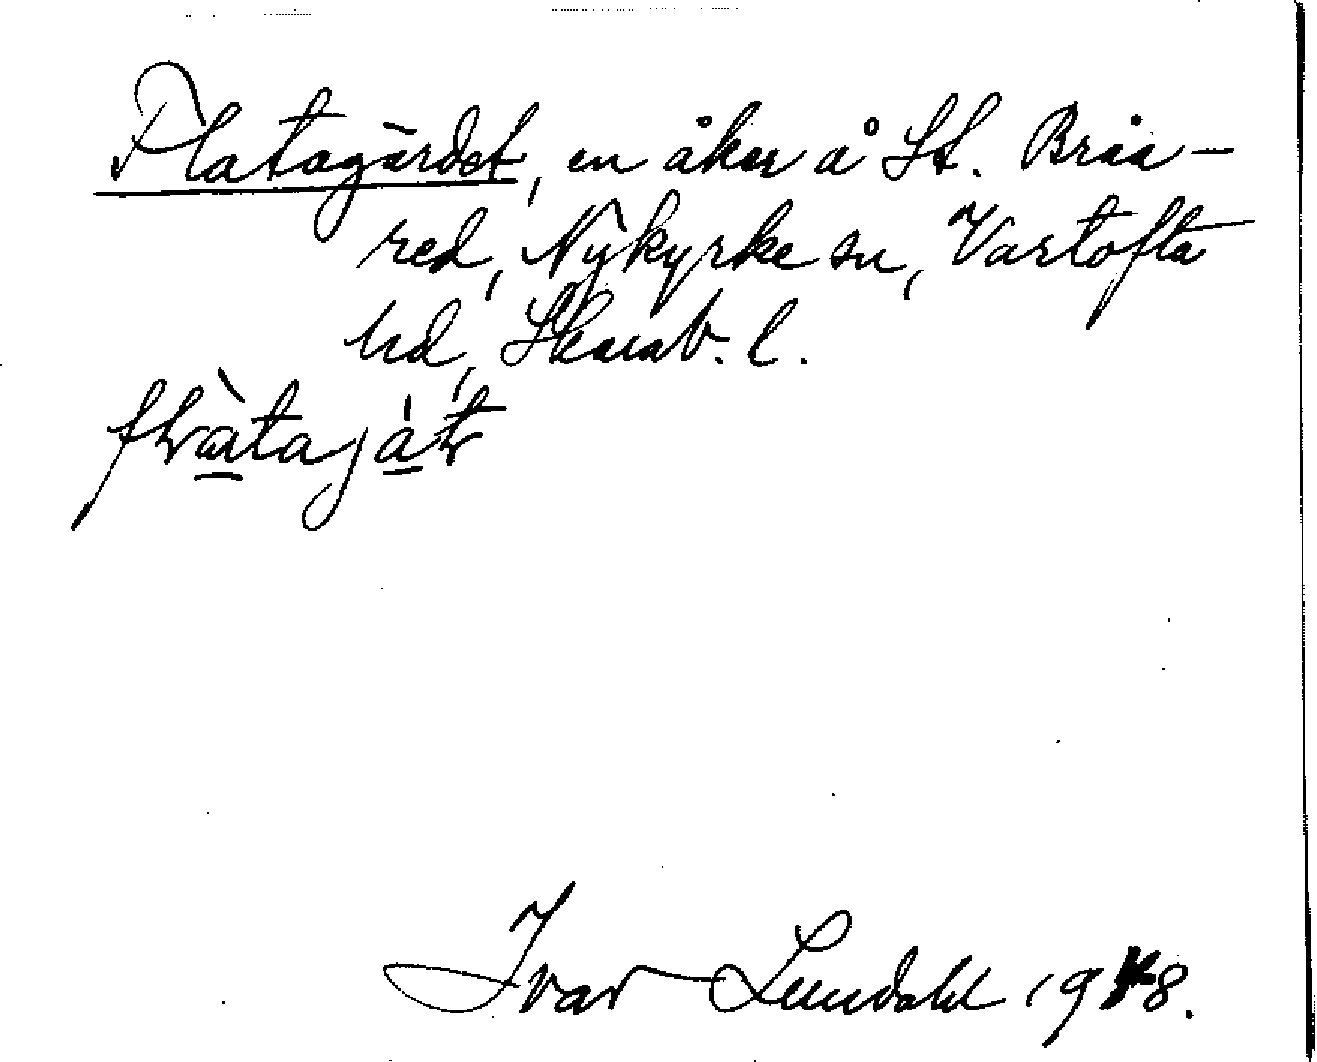 Platagärdet, en åker å St. Bråa-
red, Nykyrke sn, Vartofta
hd, Skarab. l.
Ivar Lundahl 1948.